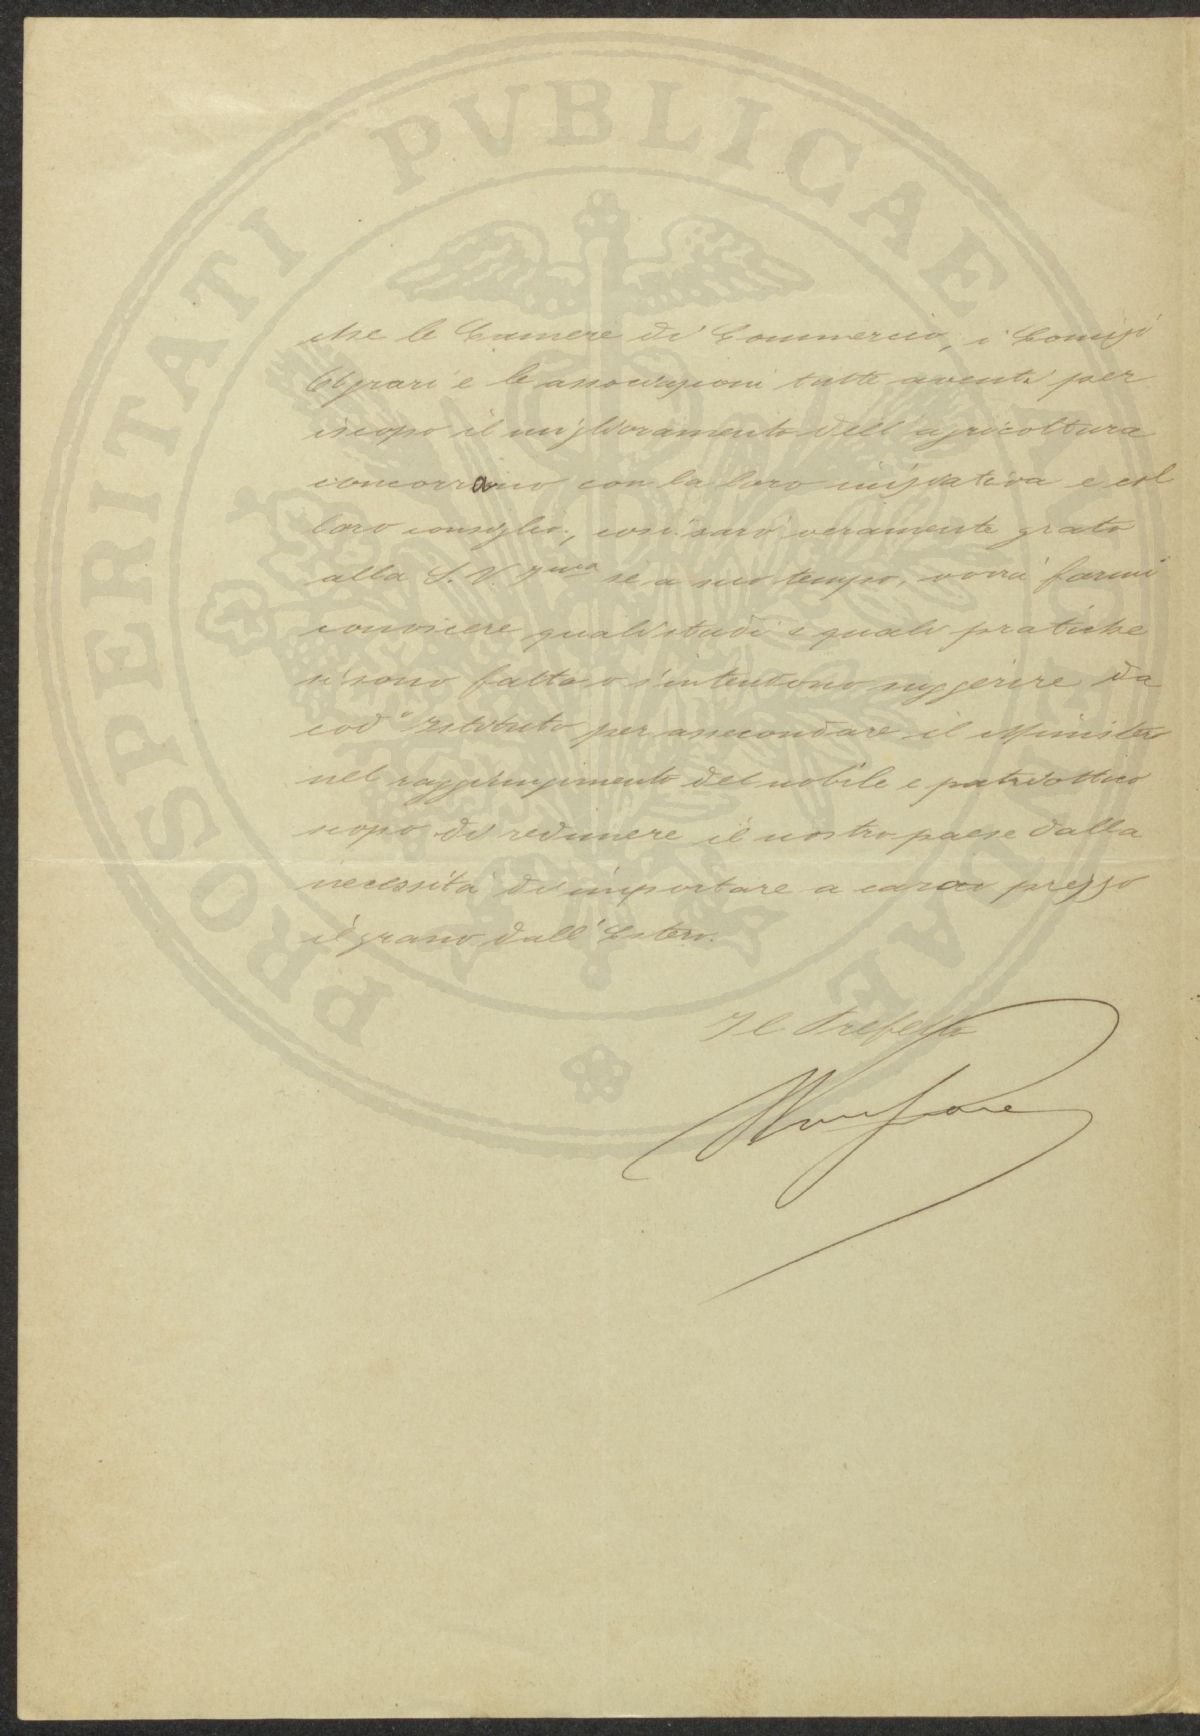 che le Camere di Commercio, i Comizi
Agrari e le associazioni tutte aventi per
iscopo il miglioramento dell'agricoltura
concorrano con la loro iniziativa e col
loro consiglio, così sarò veramente grato
alla S. V. Ill<sup>ma</sup> se a suo tempo, vorrà farmi
conoscere quali studi e quali pratiche
si sono fatte o s'intendono suggerire da
cod° Istituto per assecondare il Ministero
nel raggiungimento del nobile e patriottico
scopo di redimere il nostro paese dalla
necessità di importare a caro prezzo
il grano dall'Estero.
Il Prefetto
PROSPERITATI PVBLICAE